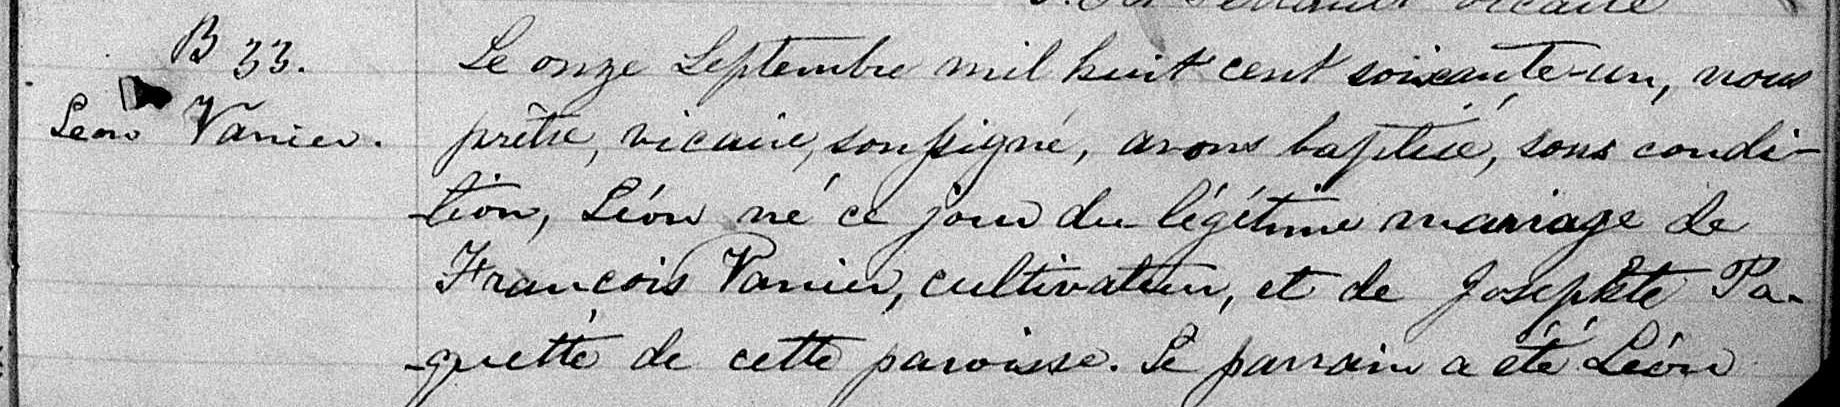 vicaire
B 33.
Le onze Septembre mil huit cent soixante-un, nous
Leon Vanier.
prêtre, vicaire, soussigné, avons baptisé, sous condi-
-tion, Léon né ce jour du légitime mariage de
François Vanier, cultivateur, et de Josephte Pa-
-quette de cette paroisse. Le parrain a été Léon